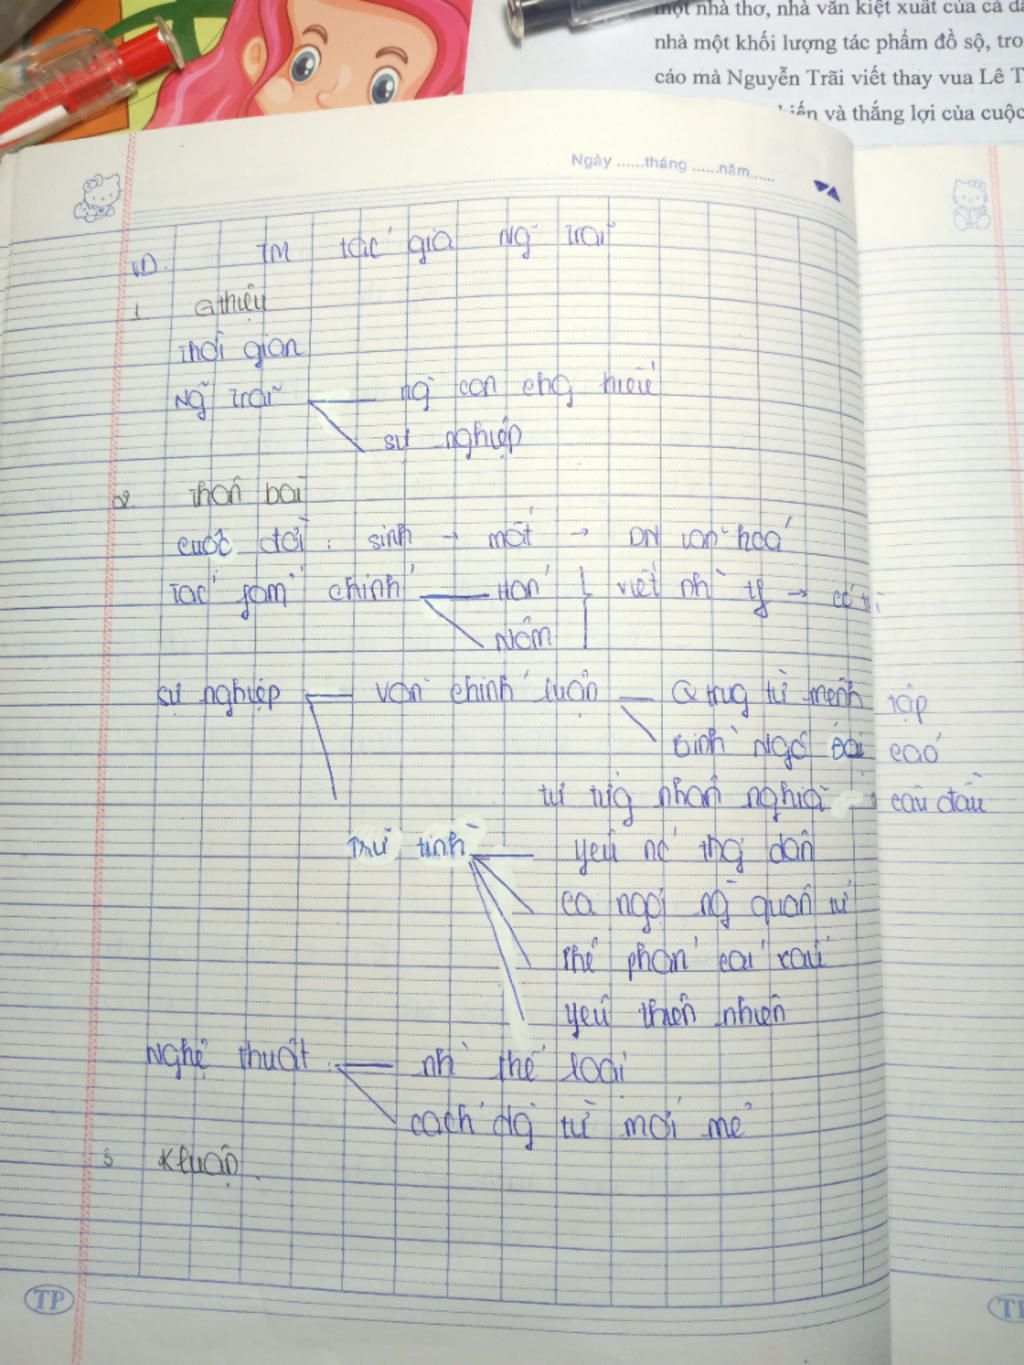 một nhà thơ, nhà văn kiệt xuất của cả
nhà một khối lượng tác phẩm đồ sộ, tro
cáo mà Nguyễn Trãi viết thay vua Lê T
và thắng lợi của cuộc
Ngày ......tháng ......năm......
TM tác giả Ng Trãi
1 Gthiệu
Thời gian
Ng Trãi ng con ưng hiếu
sự nghiệp
2. Thân bài
cuộc đời : sinh → mất → DN văn hoá
Tác fẩm chính Hán viết nh
Nôm
sự nghiệp văn chính luận Q trug từ mệnh tập
Bình Ngô Đại cáo
tư tưg nhân nghĩa câu đầu
Trữ tình yêu nc thg dân
ca ngợi ng quân tử
phê phán cái xấu
yêu thiên nhiên
Nghệ thuật nh thể loại
cách dg từ mới mẻ
3. Kluận
TP